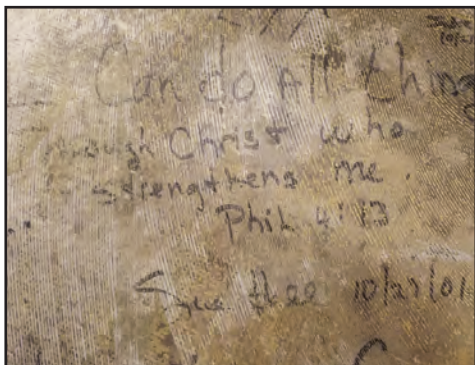 Can do All thin
through Christ who
strengthens me.
Phil 4:13
Sue 10/27/01